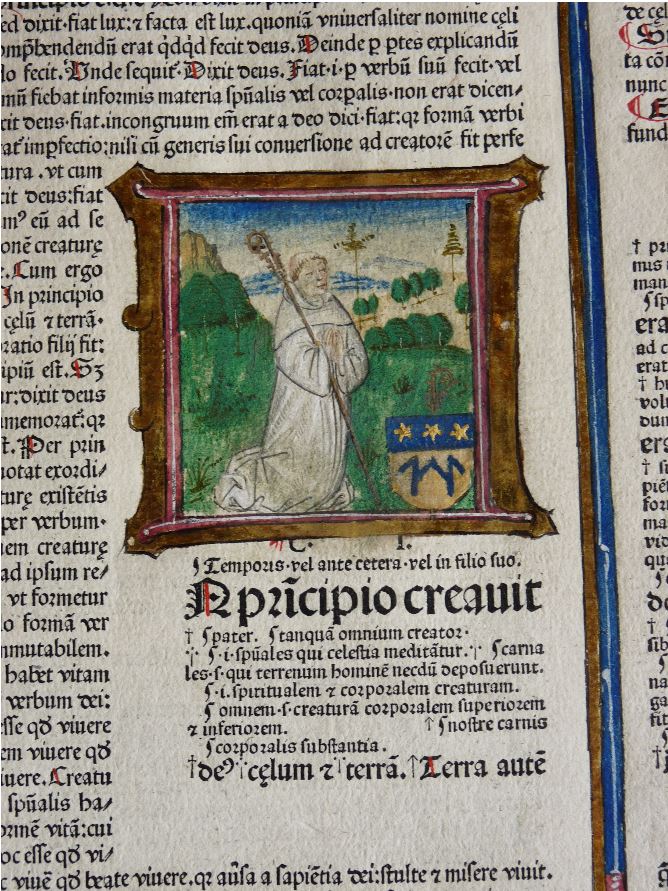 ed dixit fiat lux: ⁊ facta est lux. quoniā vniuersaliter nomine cęli
omp̄hendendū erat qd̓qd̓ fecit deus. Deinde ꝑ ꝑtes explicandū
lo fecit. Unde sequit᷑. Dixit deus. Fiat. i. ꝑ verbū suū fecit. vel
mū fiebat informis materia sp̄ualis vel corꝑalis. non erat dicen/
cit deus. fiat. incongruum em̄ erat a deo dici fiat: qr formā verbi
rat imꝑfectio: nisi cū generis sui conuersione ad creatorē fit perfe
tura. vt cum
cit deus: fiat
mꝰ eū ad se
onē creaturę
e. Cum ergo
In principio
cęlū ⁊ terrā.
ratio filij fit:
ipiū est. Sꝫ
ur: dixit deus
memorat᷑: qr
t. Per prin
notat exordi/
turę existētis
per verbum.
uem creaturę
ad ipsum re/
vt formetur
lo formā ver
mmutabilem.
habet vitam
verbum dei:
esse qd̓ viuere
em viuere qd̓
iuere. Creatu
spūalis ha/
ormē vitā: cui
oc esse qd̓ vi/
c viuē qd̓ beate viuere. qr aūsa a sapiētia dei: stulte ⁊ misere viuit.
C. I.
⸿ Temporis. vel ante cetera. vel in filio suo.
N prīncipio creauit
† ⸿ pater. ⸿ tanquā omnium creator.
† ⸿. i. spūales qui celestia meditātur. † ⸿ carna
les. s. qui terrenum hominē necdū deposuerunt.
⸿. i. spiritualem ⁊ corporalem creaturam.
⸿ omnem. s. creaturā corporalem superiorem
⁊ inferiorem. † ⸿ nostre carnis
⸿ corporalis substantia.
† deꝰ † cęlum ⁊ † terrā. † Terra autē
de cę
ta cō
nunc
fund
† pr
mis
man
era
ad c
erat
† h
volu
dun
piēt
for
ma
vid
de